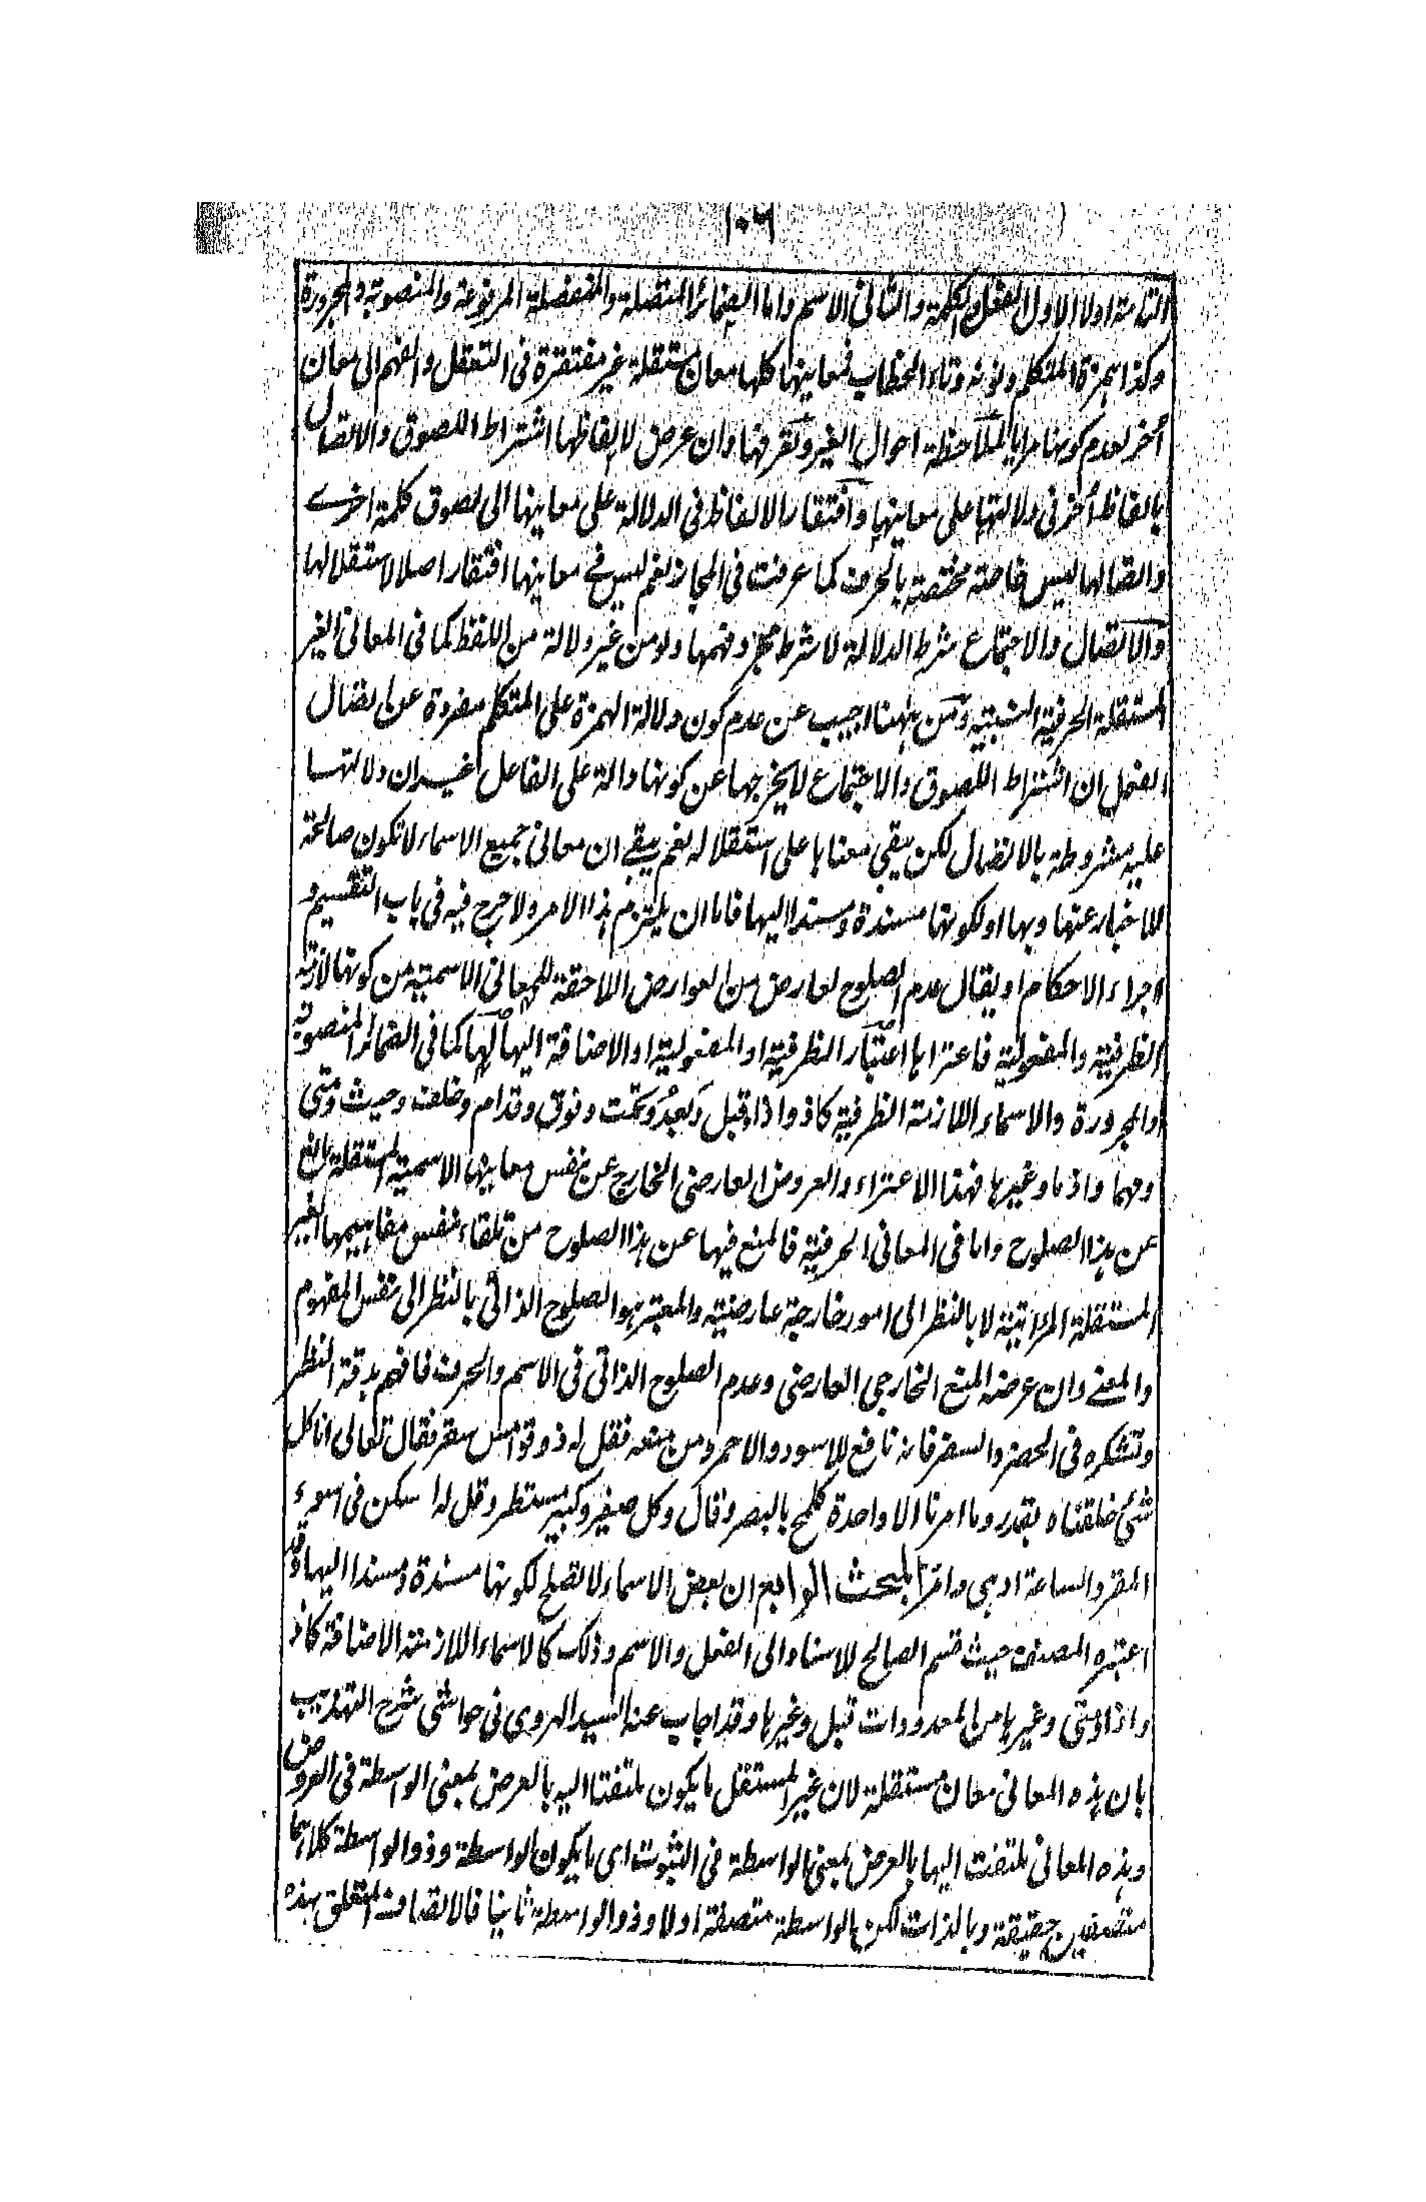 ١٠٦
التامة اولا الاول الفعل والكلمة والثانى الاسم واما الضمائر المتصلة والمنفصلة المرفوعة والمنصوبة والمجرورة
وكذا همزة المتكلم ونونه وتاء الخطاب فمعانيها كلها معان مستقلة غير مفتقرة فى التعقل والفهم الى معان
أخر لعدم كونها مرايا لملاحظة احوال الغير وتعرفها وان عرض لالفاظها اشتراط اللصوق والاتصال
بالفاظ أخر فى دلالتها على معانيها وافتقار الالفاظ فى الدلالة على معانيها الى لصوق كلمة اخرے
واتصالها ليس خاصة مختصة بالحرف كما عرفت فى المجاز نعم ليس فے معانيها افتقار اصلا لاستقلالها
والاتصال والاجتماع شرط الدلالة لا شرط مجرد فهمها ولو من غير دلالة من اللفظ كما فى المعانى الغير
المستقلة الحرفية النسبية ومن ههنا اجيب عن عدم كون دلالة الهمزة على المتكلم مفردة عن اتصال
الفعل ان اشتراط اللصوق والاجتماع لا يخرجها عن كونها دالة على الفاعل غير ان دلالتها
عليه مشروطة بالاتصال لكن يبقى معناها على استقلاله نعم يبقے ان معانى جميع الاسماء لا تكون صالحة
للاخبار عنها وبها او لكونها مسندة ومسندا اليها فاما ان يلتزم هذا الامر ولا حرج فيه فى باب التقسيم و
اجراء الاحكام او يقال عدم الصلوح لعارض من العوارض اللاحقة للمعانى الاسمية من كونها لازمة
الظرفية والمفعولية فاعتراها اعتبار الظرفية او المفعولية او الاضافة اليها لها كما فى الضمائر المنصوبة
او المجرورة والاسماء اللازمة الظرفية كاذ واذا وقبل وبعد وتحت وفوق وقدام وخلف وحيث ومتى
ومهما واذ ما وغيرها فهذا الاعتراء والعروض العارضى الخارج عن نفس معانيها الاسمية المستقلة مانع
عن هذا الصلوح واما فى المعانى الحرفية فالمنع فيها عن هذا الصلوح من تلقاء نفس مفاهيمها الغير
المستقلة المرأتية لا بالنظر الى امور خارجة عارضية والمعتبر هو الصلوح الذاتى بالنظر الى نفس المفهوم
والمعنے وان عرضه المنع الخارجى العارضى وعدم الصلوح الذاتى فى الاسم والحرف فافهم بدقة النظر
وتشكره فى الحضر والسفر فانه نافع للاسود والاحمر ومن منعه فقل له ذوقوا مس سقر فقال تعالى انا كل
شئ خلقناه بقدر وما امرنا الا واحدة كلمح بالبصر وقال وكل صغير وكبير مستطر وقل له اسكن فى اسوء
المقر والساعة ادهى وامر المبحث الرابع ان بعض الاسماء لا تصلح لكونها مسندة ومسندا اليها وقد
اعتبره المصنف حيث قسم الصالح للاسناد الى الفعل والاسم وذلك كالاسماء اللازمة الاضافة كاذ
واذا ومتى وغيرها من المعدودات قبل وغيرها وقد اجاب عنه السيد الهروى فى حواشى شرح التهذيب
بان هذه المعانى معان مستقلة لان غير المستقل ما يكون ملتفتا اليه بالعرض بمعنى الواسطة فى العروض
وهذه المعانى ملتفت اليها بالعرض بمعنى الواسطة فى الثبوت اى ما يكون الواسطة وذو الواسطة كلاهما
متصفين حقيقة وبالذات لكن الواسطة متصفة اولا وذو الواسطة ثانيا فالاتصاف المتعلق بهذه